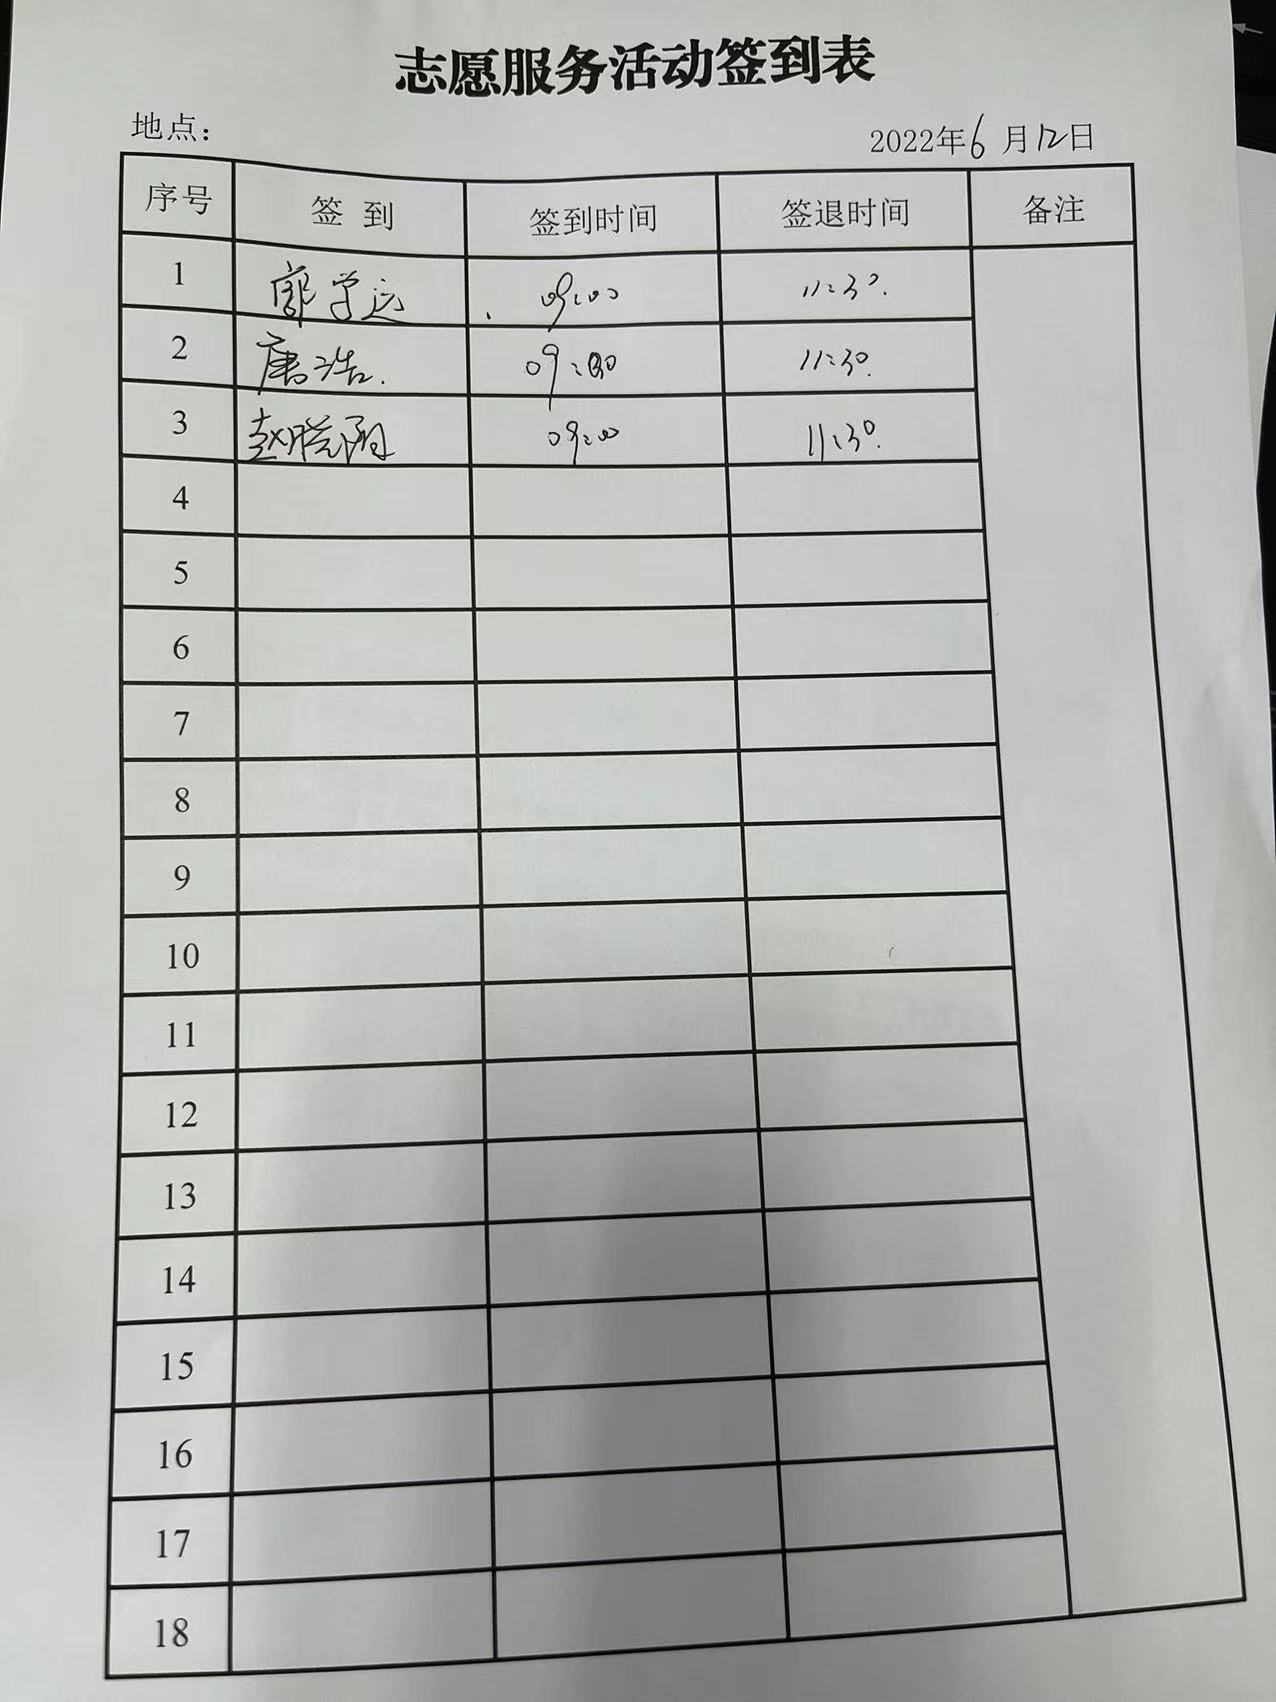 志愿服务活动签到表
地点：
2022年6月12日
序号 签到 签到时间 签退时间 备注
1 郭学远 09:00 11:30.
2 唐浩. 09:00 11:30.
3 赵晓阳 09:00 11:30.
4
5
6
7
8
9
10
11
12
13
14
15
16
17
18